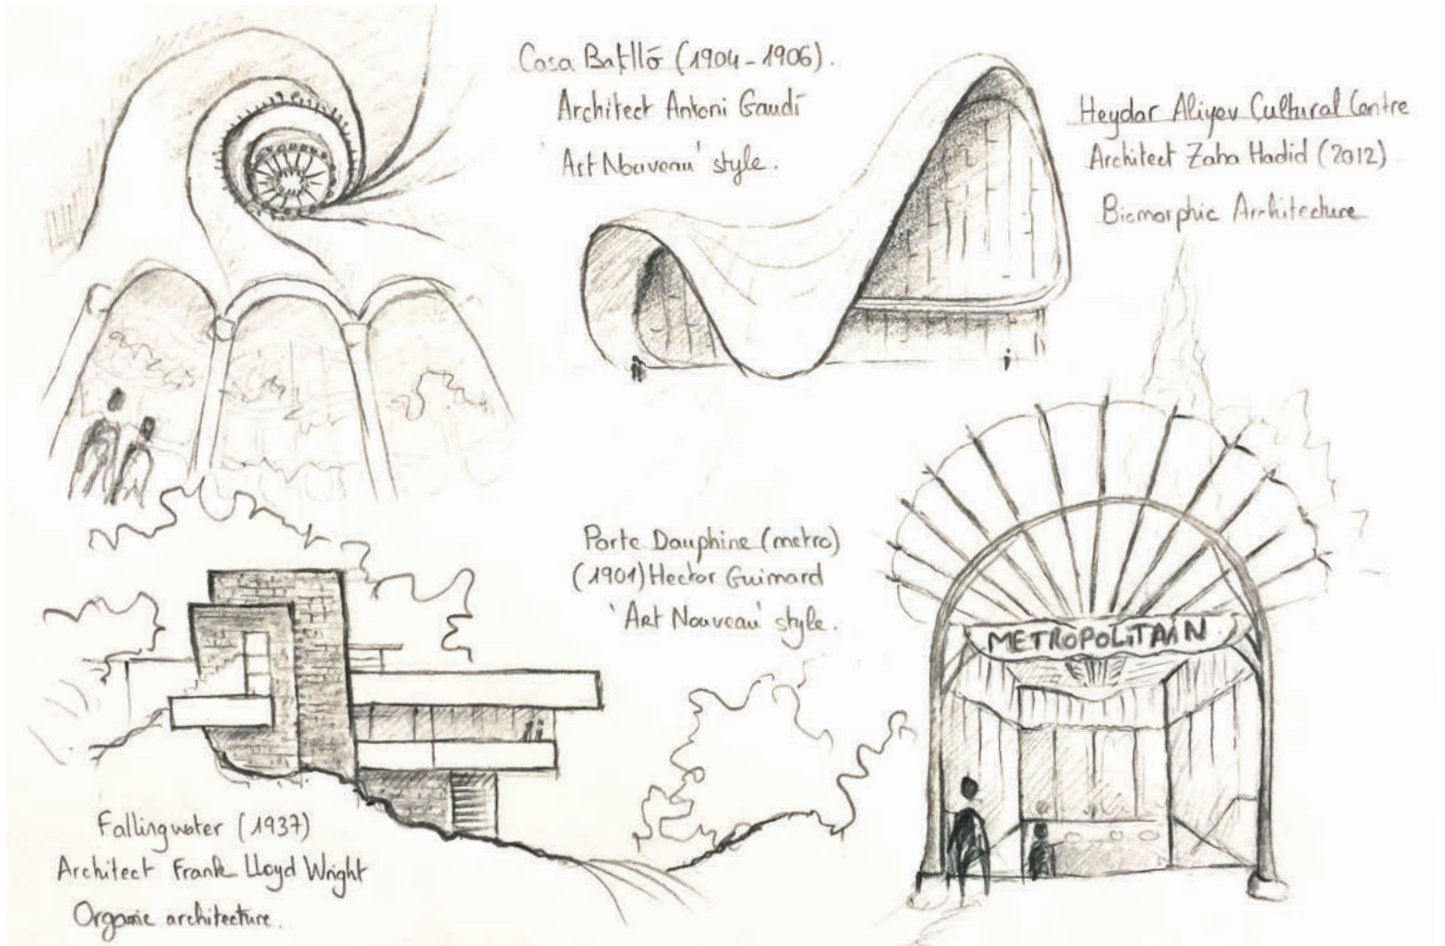 Casa Batlló (1904-1906).
Architect Antoni Gaudí
'Art Nouveau' style.
Heydar Aliyev Cultural Centre
Architect Zaha Hadid (2012)
Biomorphic Architecture
Porte Dauphine (metro)
(1901) Hector Guimard
'Art Nouveau' style.
METROPOLITAIN
Fallingwater (1937)
Architect Frank Lloyd Wright
Organic architecture.